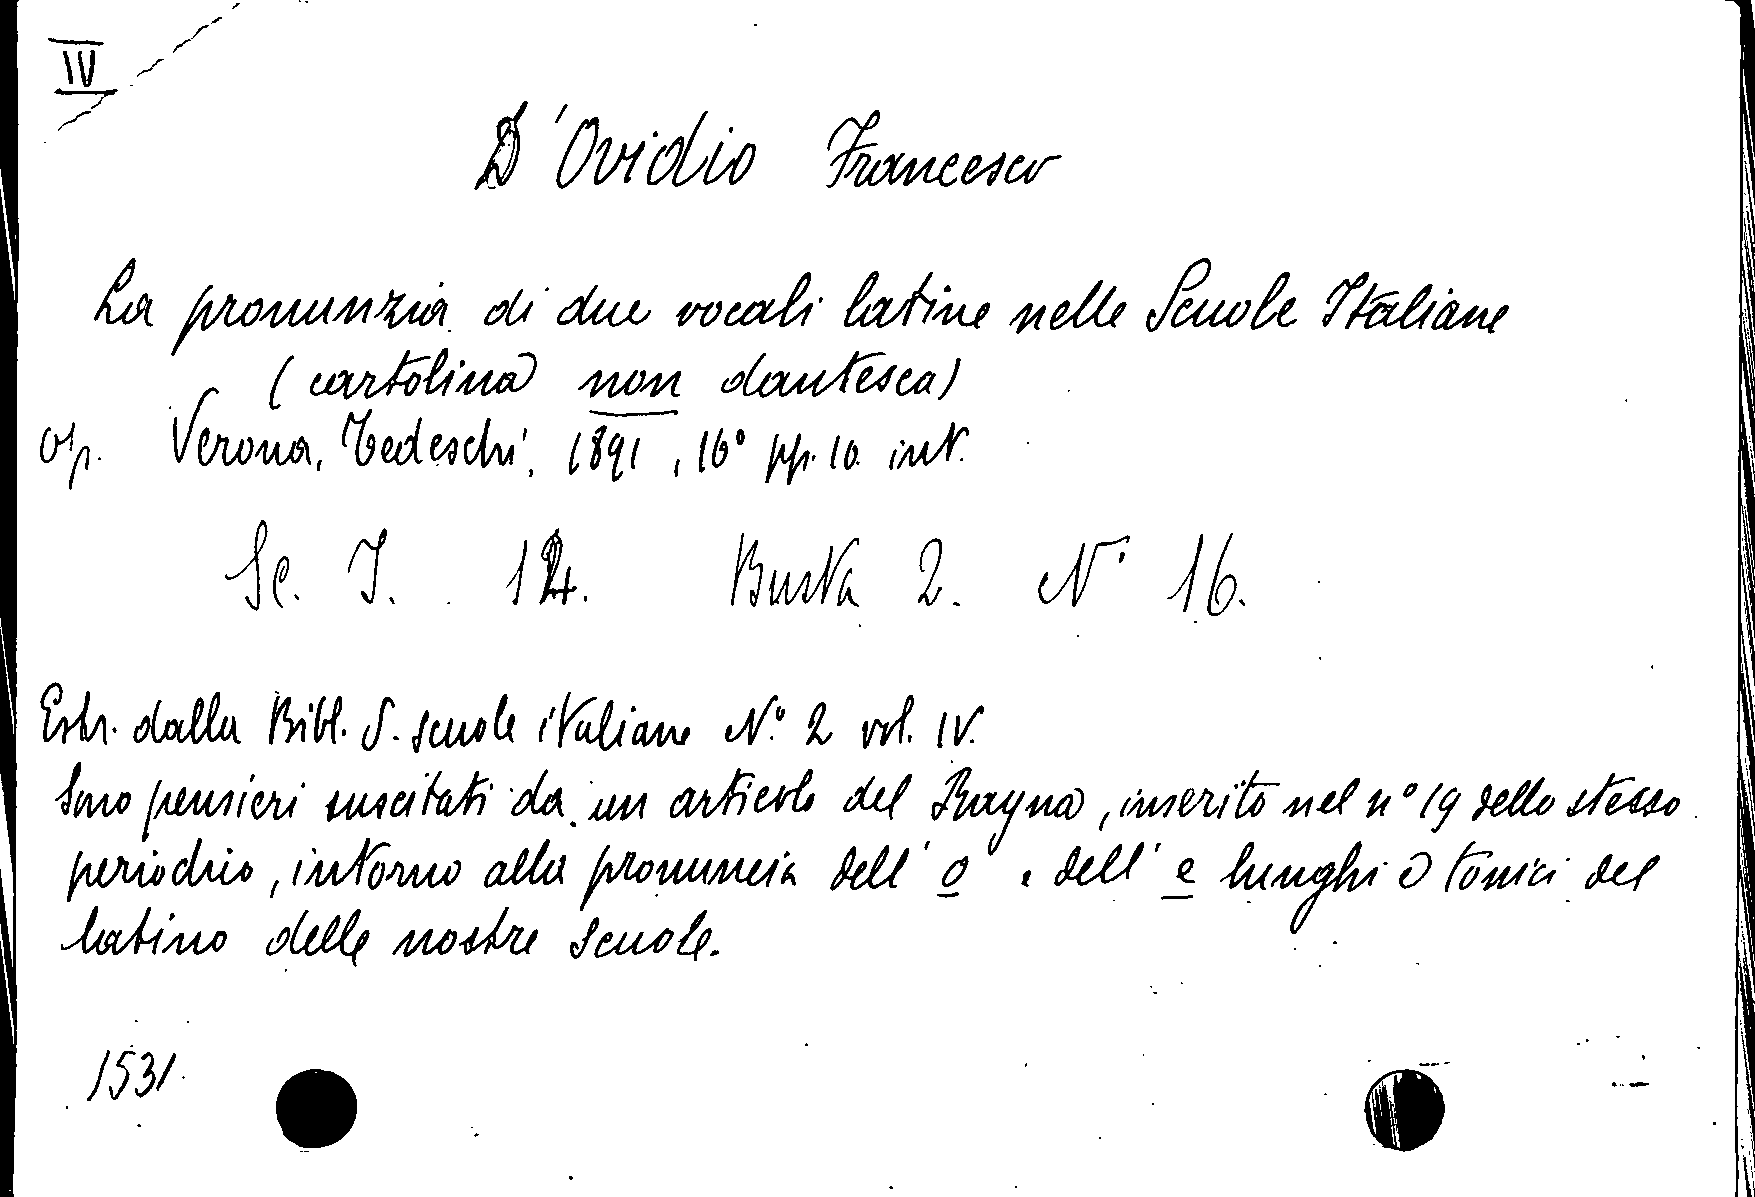 IV
D'Ovidio Francesco
La pronunzia di due vocali latine nelle Scuole Italiane
(cartolina non dantesca)
op. Verona, Tedeschi, 1891, 16° pp. 10. int.
Sc. I. 12. Busta 2. N° 16.
Estr. dalla Bibl. d. scuole italiane N.° 2 vol. IV.
Sono pensieri suscitati da un articolo del Rayna, inserito nel n° 19 dello stesso
periodico, intorno alla pronuncia dell' o e dell' e lunghi o tonici del
latino delle nostre scuole.
1531